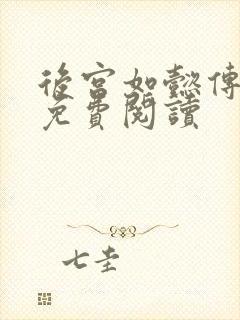 後宮如懿傳
免費閱讀
七圭